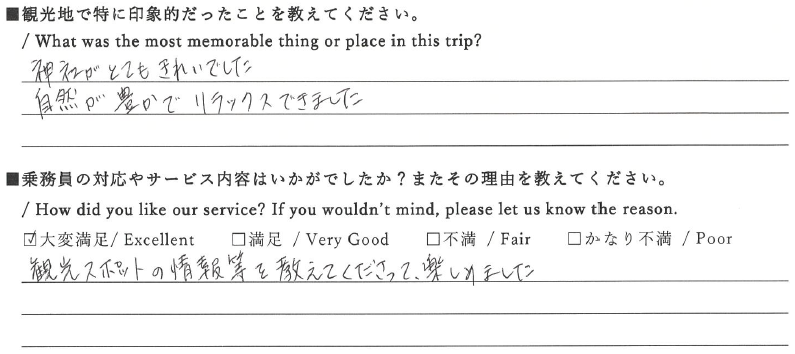 ■観光地で特に印象的だったことを教えてください。
/ What was the most memorable thing or place in this trip?
神社がとてもきれいでした
自然が豊かでリラックスできました
■乗務員の対応やサービス内容はいかがでしたか？またその理由を教えてください。
/ How did you like our service? If you wouldn't mind, please let us know the reason.
☑大変満足/ Excellent □満足 / Very Good □不満 / Fair □かなり不満 / Poor
観光スポットの情報等を教えてくださって、楽しめました